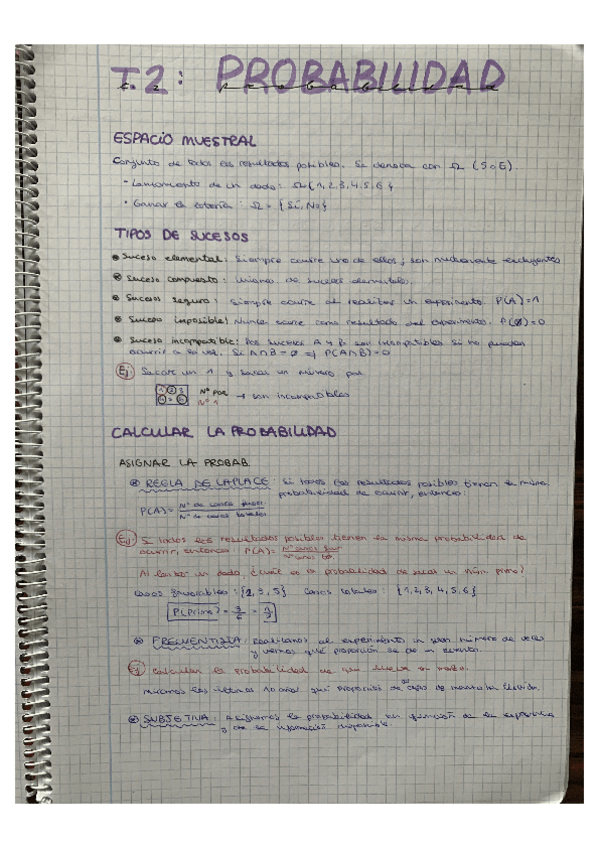 T.2: PROBABILIDAD
ESPACIO MUESTRAL
Conjunto de todos los resultados posibles. Se denota con Ω (S o E).
- Lanzamiento de un dado: Ω{1,2,3,4,5,6}
• Ganar la lotería: Ω = {Sí, No}
TIPOS DE SUCESOS
Suceso elemental: Siempre ocurre uno de ellos, son mutuamente excluyentes
Suceso compuesto: Uniones de sucesos elementales.
Sucesos seguro: Siempre ocurre al realizar un experimento. P(A)=1
Suceso imposible: Nunca ocurre como resultado del experimento. P(Ø)=0
Suceso incompatible: Dos sucesos A y B son incompatibles si no pueden
ocurrir a la vez. Si A∩B = Ø ⇒ P(A∩B)=0
Ej: Sacar un 1 y sacar un número par
1 2 3
4 5 6
Nº PAR
Nº 1
→ son incompatibles
CALCULAR LA PROBABILIDAD
ASIGNAR LA PROBAB.
REGLA DE LAPLACE: Si todos los resultados posibles tienen la misma
probabilidad de ocurrir, entonces:
P(A) = Nº de casos favor. / Nº de casos totales
Ej: Si todos los resultados posibles tienen la misma probabilidad de
ocurrir, entonces: P(A) = Nº casos fav / Nº casos tot.
Al lanzar un dado, ¿cuál es la probabilidad de sacar un núm. primo?
Casos favorables: {2,3,5} Casos totales: {1,2,3,4,5,6}
P(Primo) = 3/6 = 1/2
FRECUENTISTA: Realizamos el experimento un gran número de veces
y vemos qué proporción se da un evento.
Ej Calcular la probabilidad de que llueva en
miramos los últimos 10 años qué proporción de días de ha llovido.
SUBJETIVA: Asignamos la probabilidad en función de la experiencia
y de la información disponible.